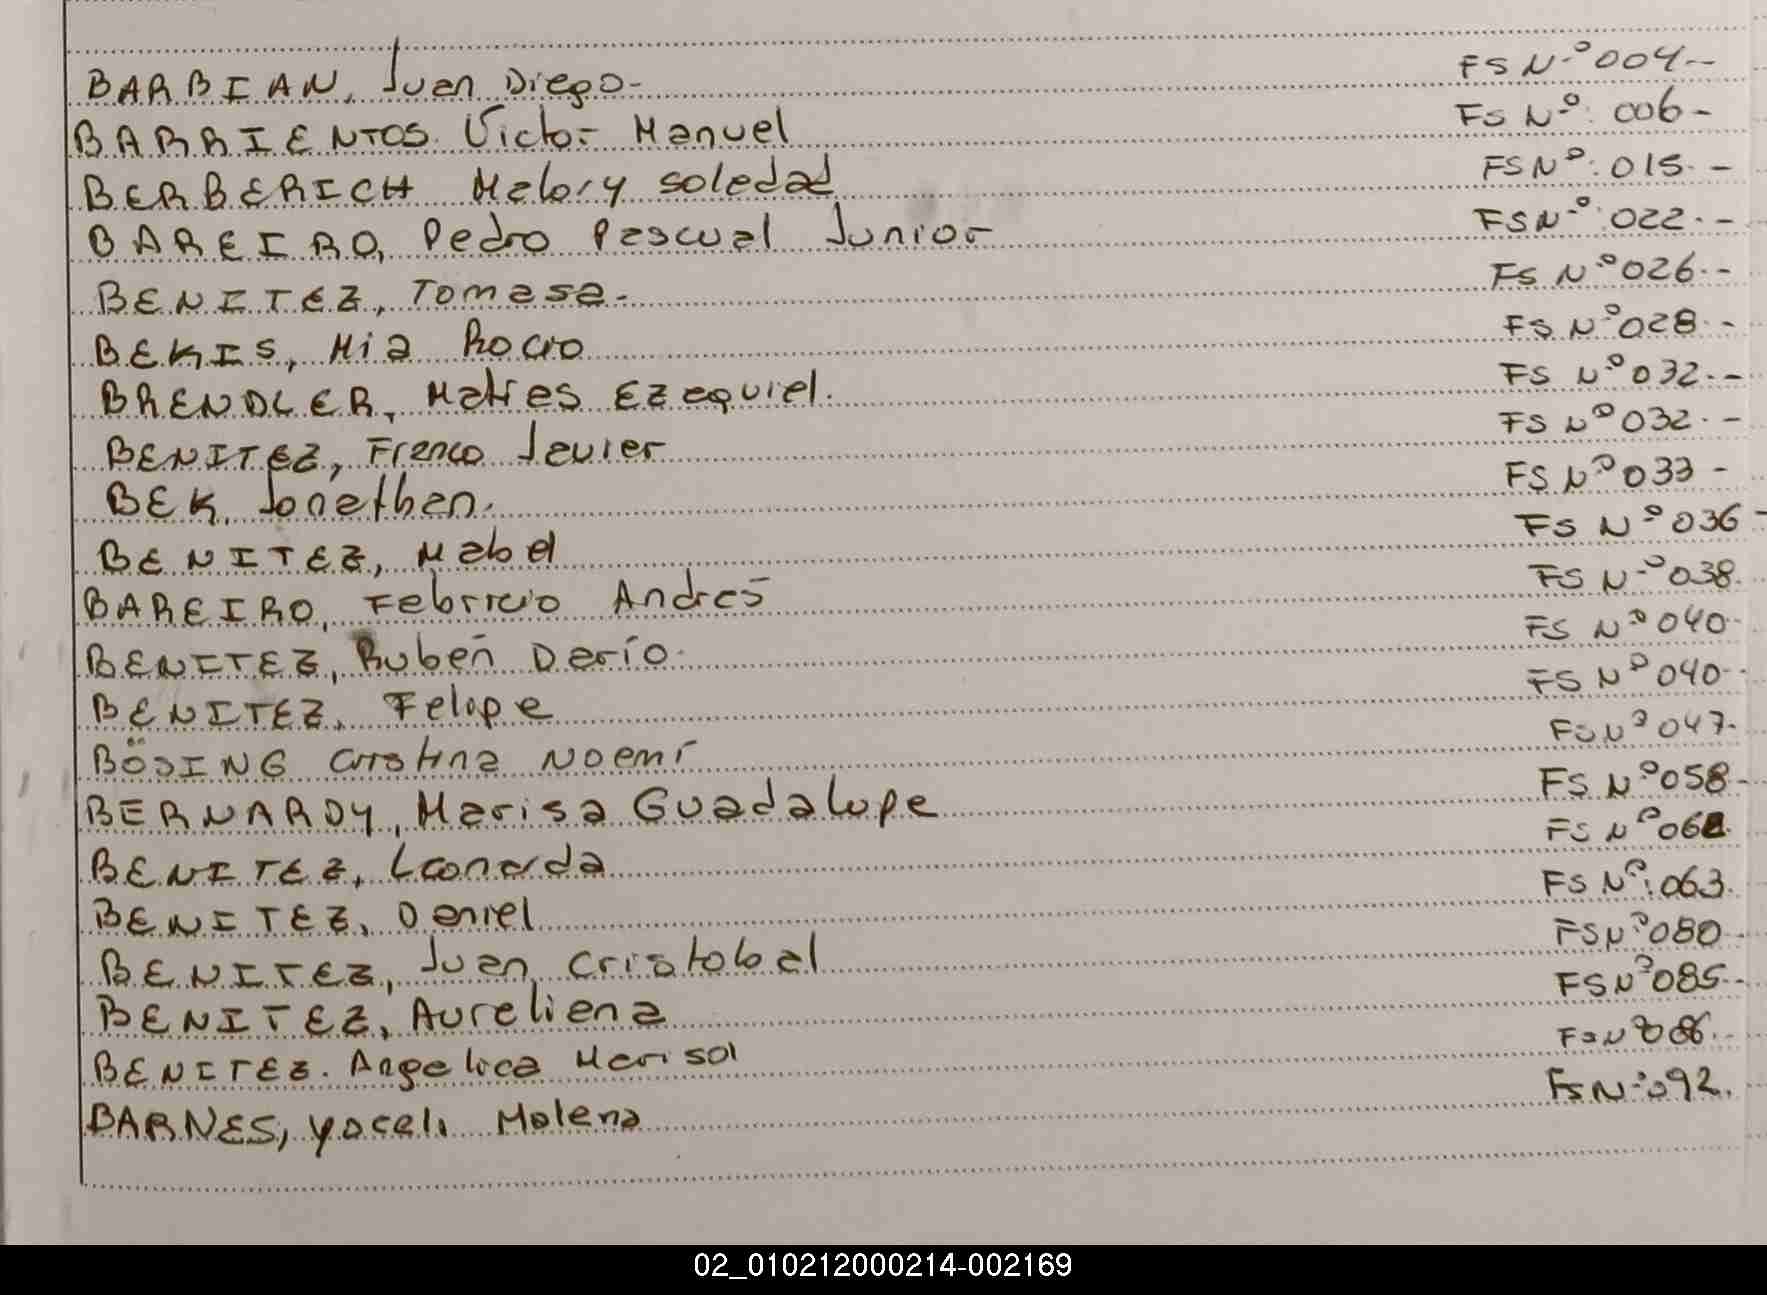 BARBIAN, Juan Diego- FS N-º 004--
BARRIENTOS. Victor Manuel FS Nº: 006-
BERBERICH Malory soledad FS Nº: 015.-
BAREIRO, Pedro Pascual Junior- FS N-º: 022.--
BENITEZ, Tomasa- FS Nº 026.--
BEKIS, Mia Rocio FS Nº 028.-
BRENDLER, Matias Ezequiel. FS Nº 032.--
BENITEZ, Franco Javier FS Nº 032.-
BEK, Jonathan. FS Nº 033-
BENITEZ, Mabel FS Nº 036-
BAREIRO, Fabricio Andrés FS N-º 038.
BENITEZ, Rubén Darío. FS Nº 040-
BENITEZ, Felipe FS Nº 040--
BÖSING Cristina Noemí FS Nº 047-
BERNARDY, Marisa Guadalupe FS Nº 058-
BENITEZ, Leonarda FS Nº
BENITEZ, Daniel FS Nº: 063.
BENITEZ, Juan Cristobal FS Nº 080-
BENITEZ, Aureliana FS Nº 085--
BENITEZ. Angelica Marisol FS Nº 086.-
BARNES, Yaceli Malena FS Nº 092.
02_010212000214-002169